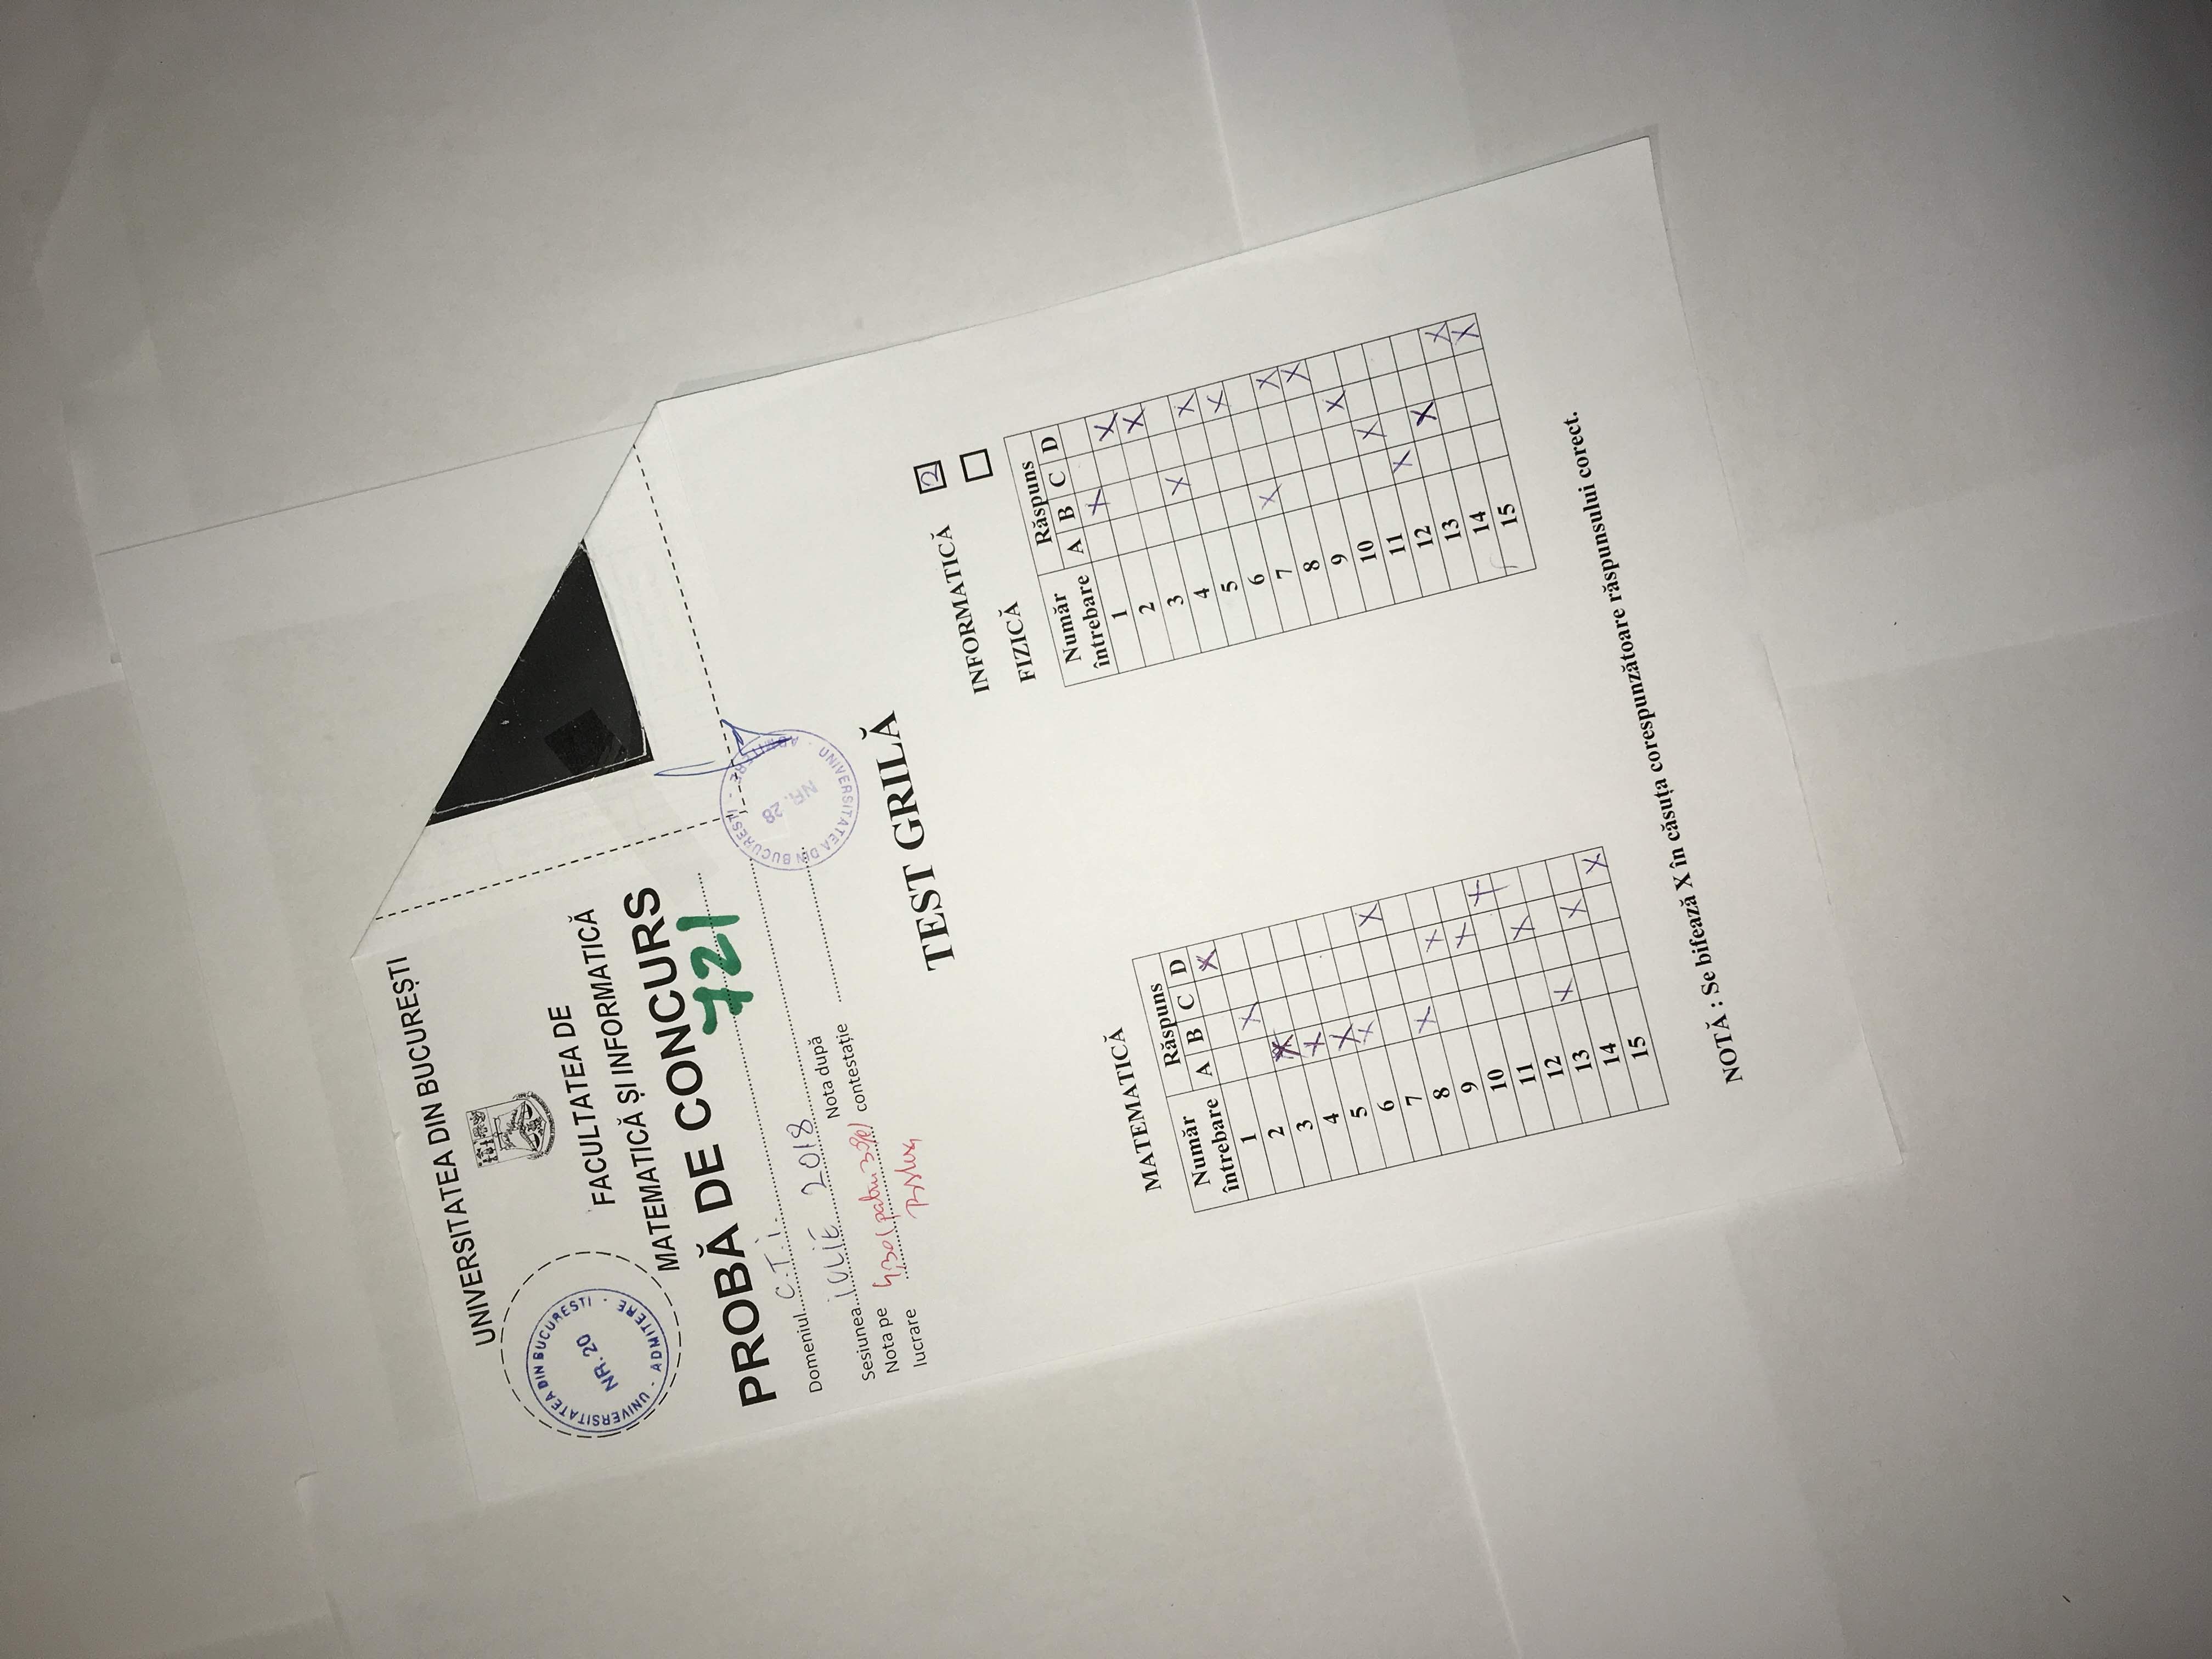 UNIVERSITATEA DIN BUCUREȘTI
UNIVERSITATEA DIN BUCURESTI · ADMITERE ·
NR. 20
FACULTATEA DE
MATEMATICĂ ȘI INFORMATICĂ
PROBĂ DE CONCURS
721
Domeniul C.T.i.
Sesiunea iULiE 2018
Nota pe lucrare 4,30 (patru 30%)
Nota după contestație
UNIVERSITATEA DIN BUCURESTI · ADMITERE ·
NR. 28
TEST GRILĂ
INFORMATICĂ 2
FIZICĂ
MATEMATICĂ
Număr întrebare Răspuns
A B C D
1 X
2 X
3 X
4 X
5 X
6 X
7 X
8 X
9 X
10 X
11 X
12 X
13 X
14 X
15 X
Număr întrebare Răspuns
A B C D
1 X
2 X
3 X
4 X
5 X
6 X
7 X
8 X
9 X
10 X
11 X
12 X
13 X
14 X
15 X
NOTĂ : Se bifează X în căsuța corespunzătoare răspunsului corect.